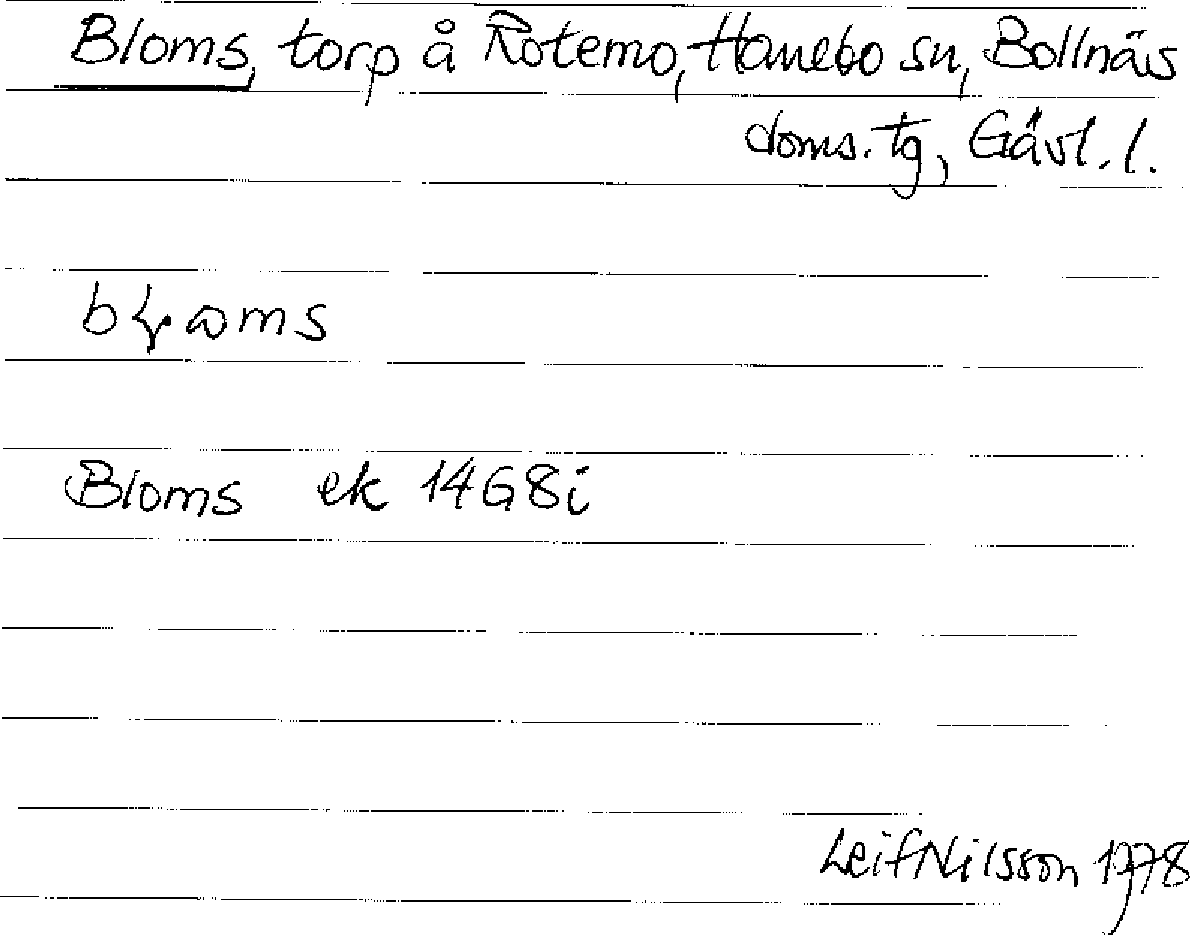 Bloms, torp å Rotemo, Hanebo sn, Bollnäs
doms. tg, Gävl. l.
Bloms ek 14G8i
Leif Nilsson 1978